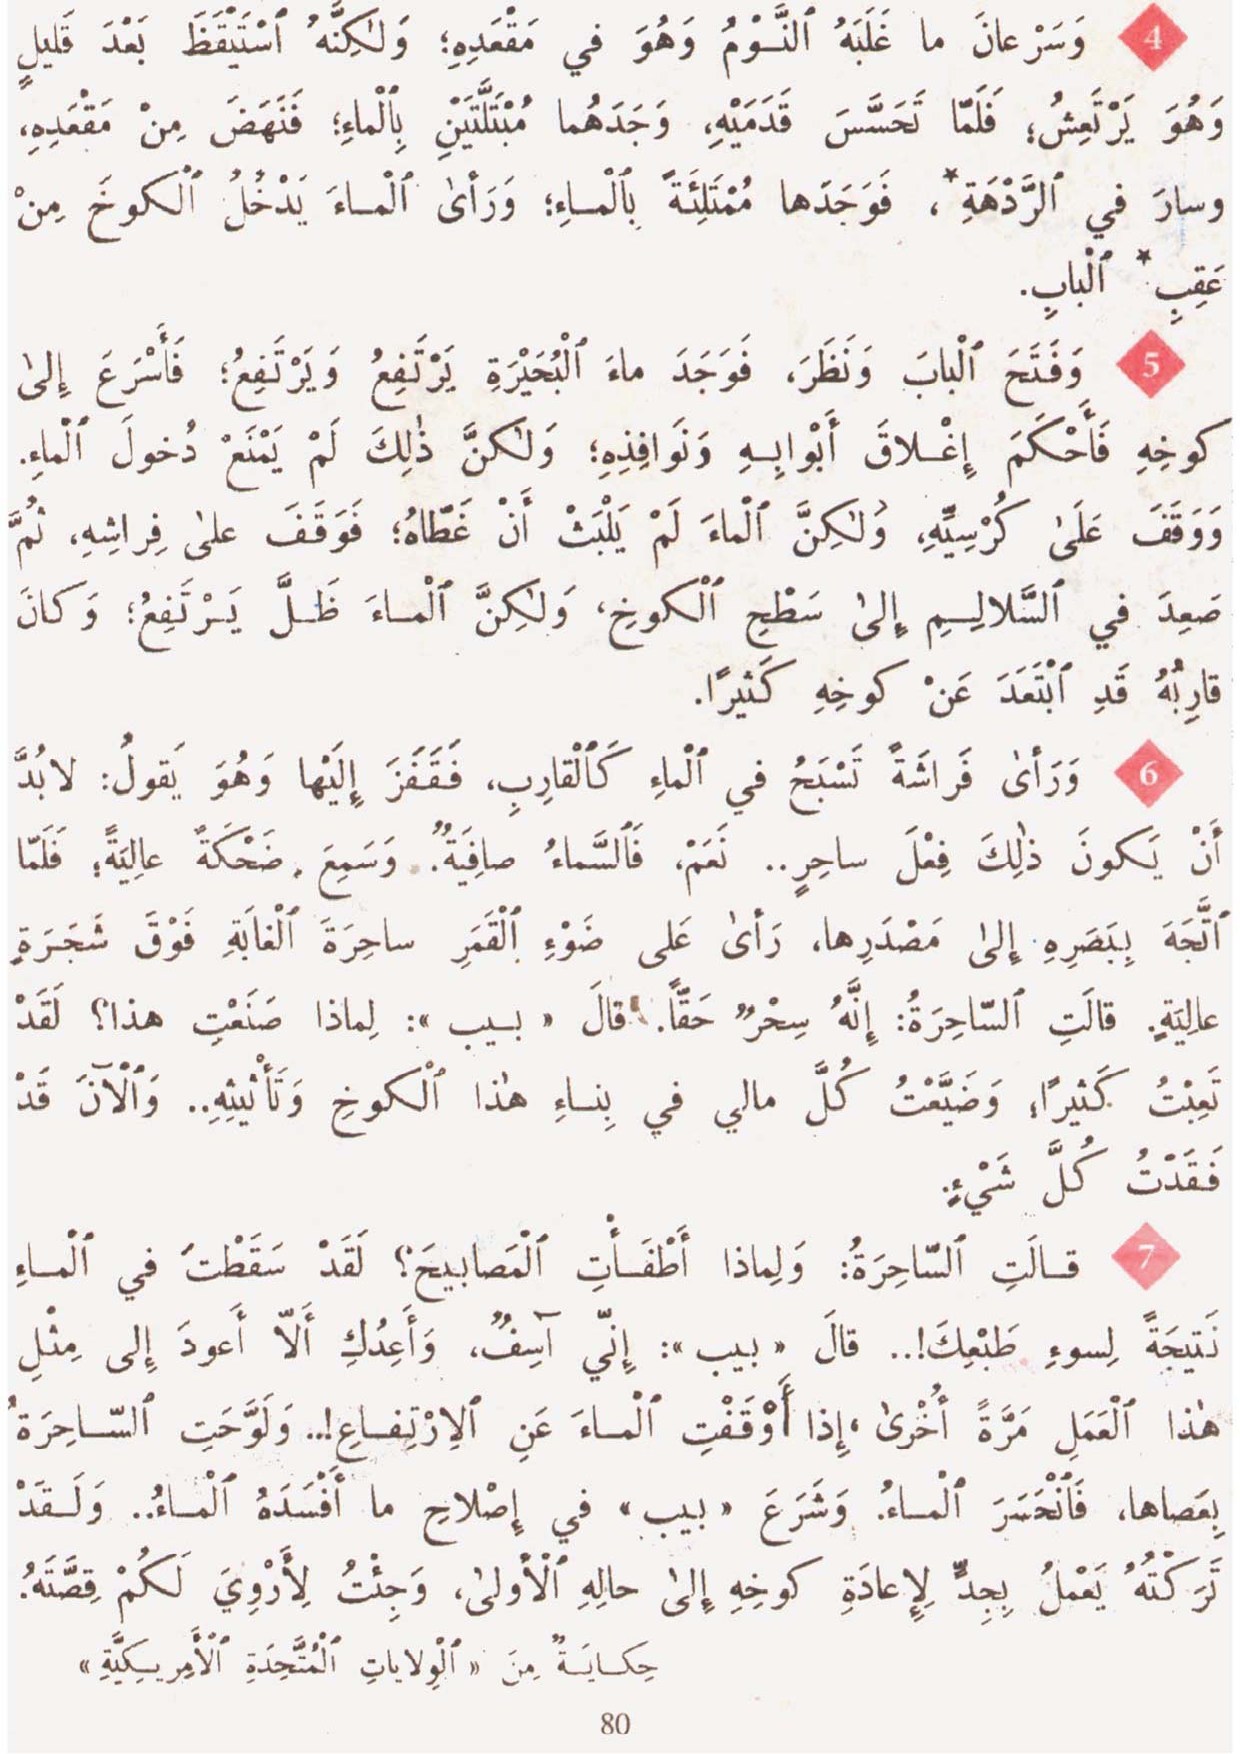 4 وَسَرْعانَ ما غَلَبَهُ ٱلنَّـوْمُ وَهُوَ في مَقْعَدِهِ؛ وَلـٰكِنَّهُ ٱسْتَيْقَظَ بَعْدَ قَليلٍ
وَهُوَ يَرْتَعِشُ؛ فَلَمّا تَحَسَّسَ قَدَمَيْهِ، وَجَدَهُما مُبْتَلَّتَيْنِ بِٱلْماءِ؛ فَنَهَضَ مِنْ مَقْعَدِهِ،
وسارَ في ٱلرَّدْهَةِ*، فَوَجَدَها مُمْتَلِئَةً بِٱلْمـاءِ؛ وَرَأىٰ ٱلْمـاءَ يَدْخُلُ ٱلْكوخَ مِنْ
عَقِبِ* ٱلْبابِ.
5 وَفَتَحَ ٱلْبابَ وَنَظَرَ، فَوَجَدَ ماءَ ٱلْبُحَيْرَةِ يَرْتَفِعُ وَيَرْتَفِعُ؛ فَأَسْرَعَ إِلىٰ
كوخِهِ فَأَحْكَمَ إِغْـلاقَ أَبْوابِـهِ وَنَوافِذِهِ؛ وَلـٰكنَّ ذٰلِكَ لَمْ يَمْنَعْ دُخولَ ٱلْماءِ.
وَوَقَفَ عَلَىٰ كُرْسِيِّهِ، وَلـٰكِنَّ ٱلْماءَ لَمْ يَلْبَثْ أَنْ غَطّاهُ؛ فَوَقَفَ علىٰ فِراشِهِ، ثُمَّ
صَعِدَ في ٱلسَّلالِـمِ إِلىٰ سَطْحِ ٱلْكوخِ، وَلـٰكِنَّ ٱلْمـاءَ ظَـلَّ يَـرْتَفِعُ؛ وَكانَ
قارِبُهُ قَدِ ٱبْتَعَدَ عَنْ كوخِهِ كَثيرًا.
6 وَرَأىٰ فَراشَةً تَسْبَحُ في ٱلْماءِ كَٱلْقارِبِ، فَقَفَزَ إِلَيْها وَهُوَ يَقولُ: لابُدَّ
أَنْ يَكونَ ذٰلِكَ فِعْلَ ساحِرٍ.. نَعَمْ، فَٱلسَّماءُ صافِيَةٌ. وَسَمِعَ ضَحْكَةً عالِيَةً؛ فَلَمّا
ٱتَّجَهَ بِبَصَرِهِ إِلىٰ مَصْدَرِها، رَأىٰ عَلى ضَوْءِ ٱلْقَمَرِ ساحِرَةَ ٱلْغابَةِ فَوْقَ شَجَرَةٍ
عالِيَةٍ. قالَتِ ٱلسّاحِرَةُ: إِنَّهُ سِحْرٌ حَقًّا. قالَ « بـيب »: لِماذا صَنَعْتِ هذا؟ لَقَدْ
تَعِبْتُ كَثيرًا؛ وَضَيَّعْتُ كُلَّ مالي في بِنـاءِ هٰذا ٱلْكوخِ وَتَأْثيثِهِ.. وَٱلْآنَ قَدْ
فَقَدْتُ كُلَّ شَيْءٍ.
7 قـالَتِ ٱلسّاحِرَةُ: وَلِماذا أَطْفَـأْتِ ٱلْمَصابيحَ؟ لَقَدْ سَقَطْتَ في ٱلْمـاءِ
نَتيجَةً لِسوءِ طَبْعِكَ!.. قالَ « بيب »: إِنّي آسِفٌ، وَأَعِدُكِ أَلاّ أَعودَ إِلى مِثْلِ
هٰذا ٱلْعَمَلِ مَرَّةً أُخْرىٰ، إِذا أَوْقَفْتِ ٱلْمـاءَ عَنِ ٱلاِرْتِفـاعِ!.. وَلَوَّحَتِ ٱلسّـاحِرَةُ
بِعَصاها، فَٱنْحَسَرَ ٱلْمـاءُ. وَشَرَعَ « بيب » في إِصْلاحِ ما أَفْسَدَهُ ٱلْمـاءُ.. وَلَـقَدْ
تَرَكْتُهُ يَعْمَلُ بِجِدٍّ لِإِعادَةِ كوخِهِ إِلىٰ حالِهِ ٱلْأولىٰ، وَجِئْتُ لِأَرْوِيَ لَكُمْ قِصَّتَهُ.
حِكـايَـةٌ مِنَ « ٱلْوِلاياتِ ٱلْمُتَّحِدَةِ ٱلْأَمِريـكِيَّةِ »
80